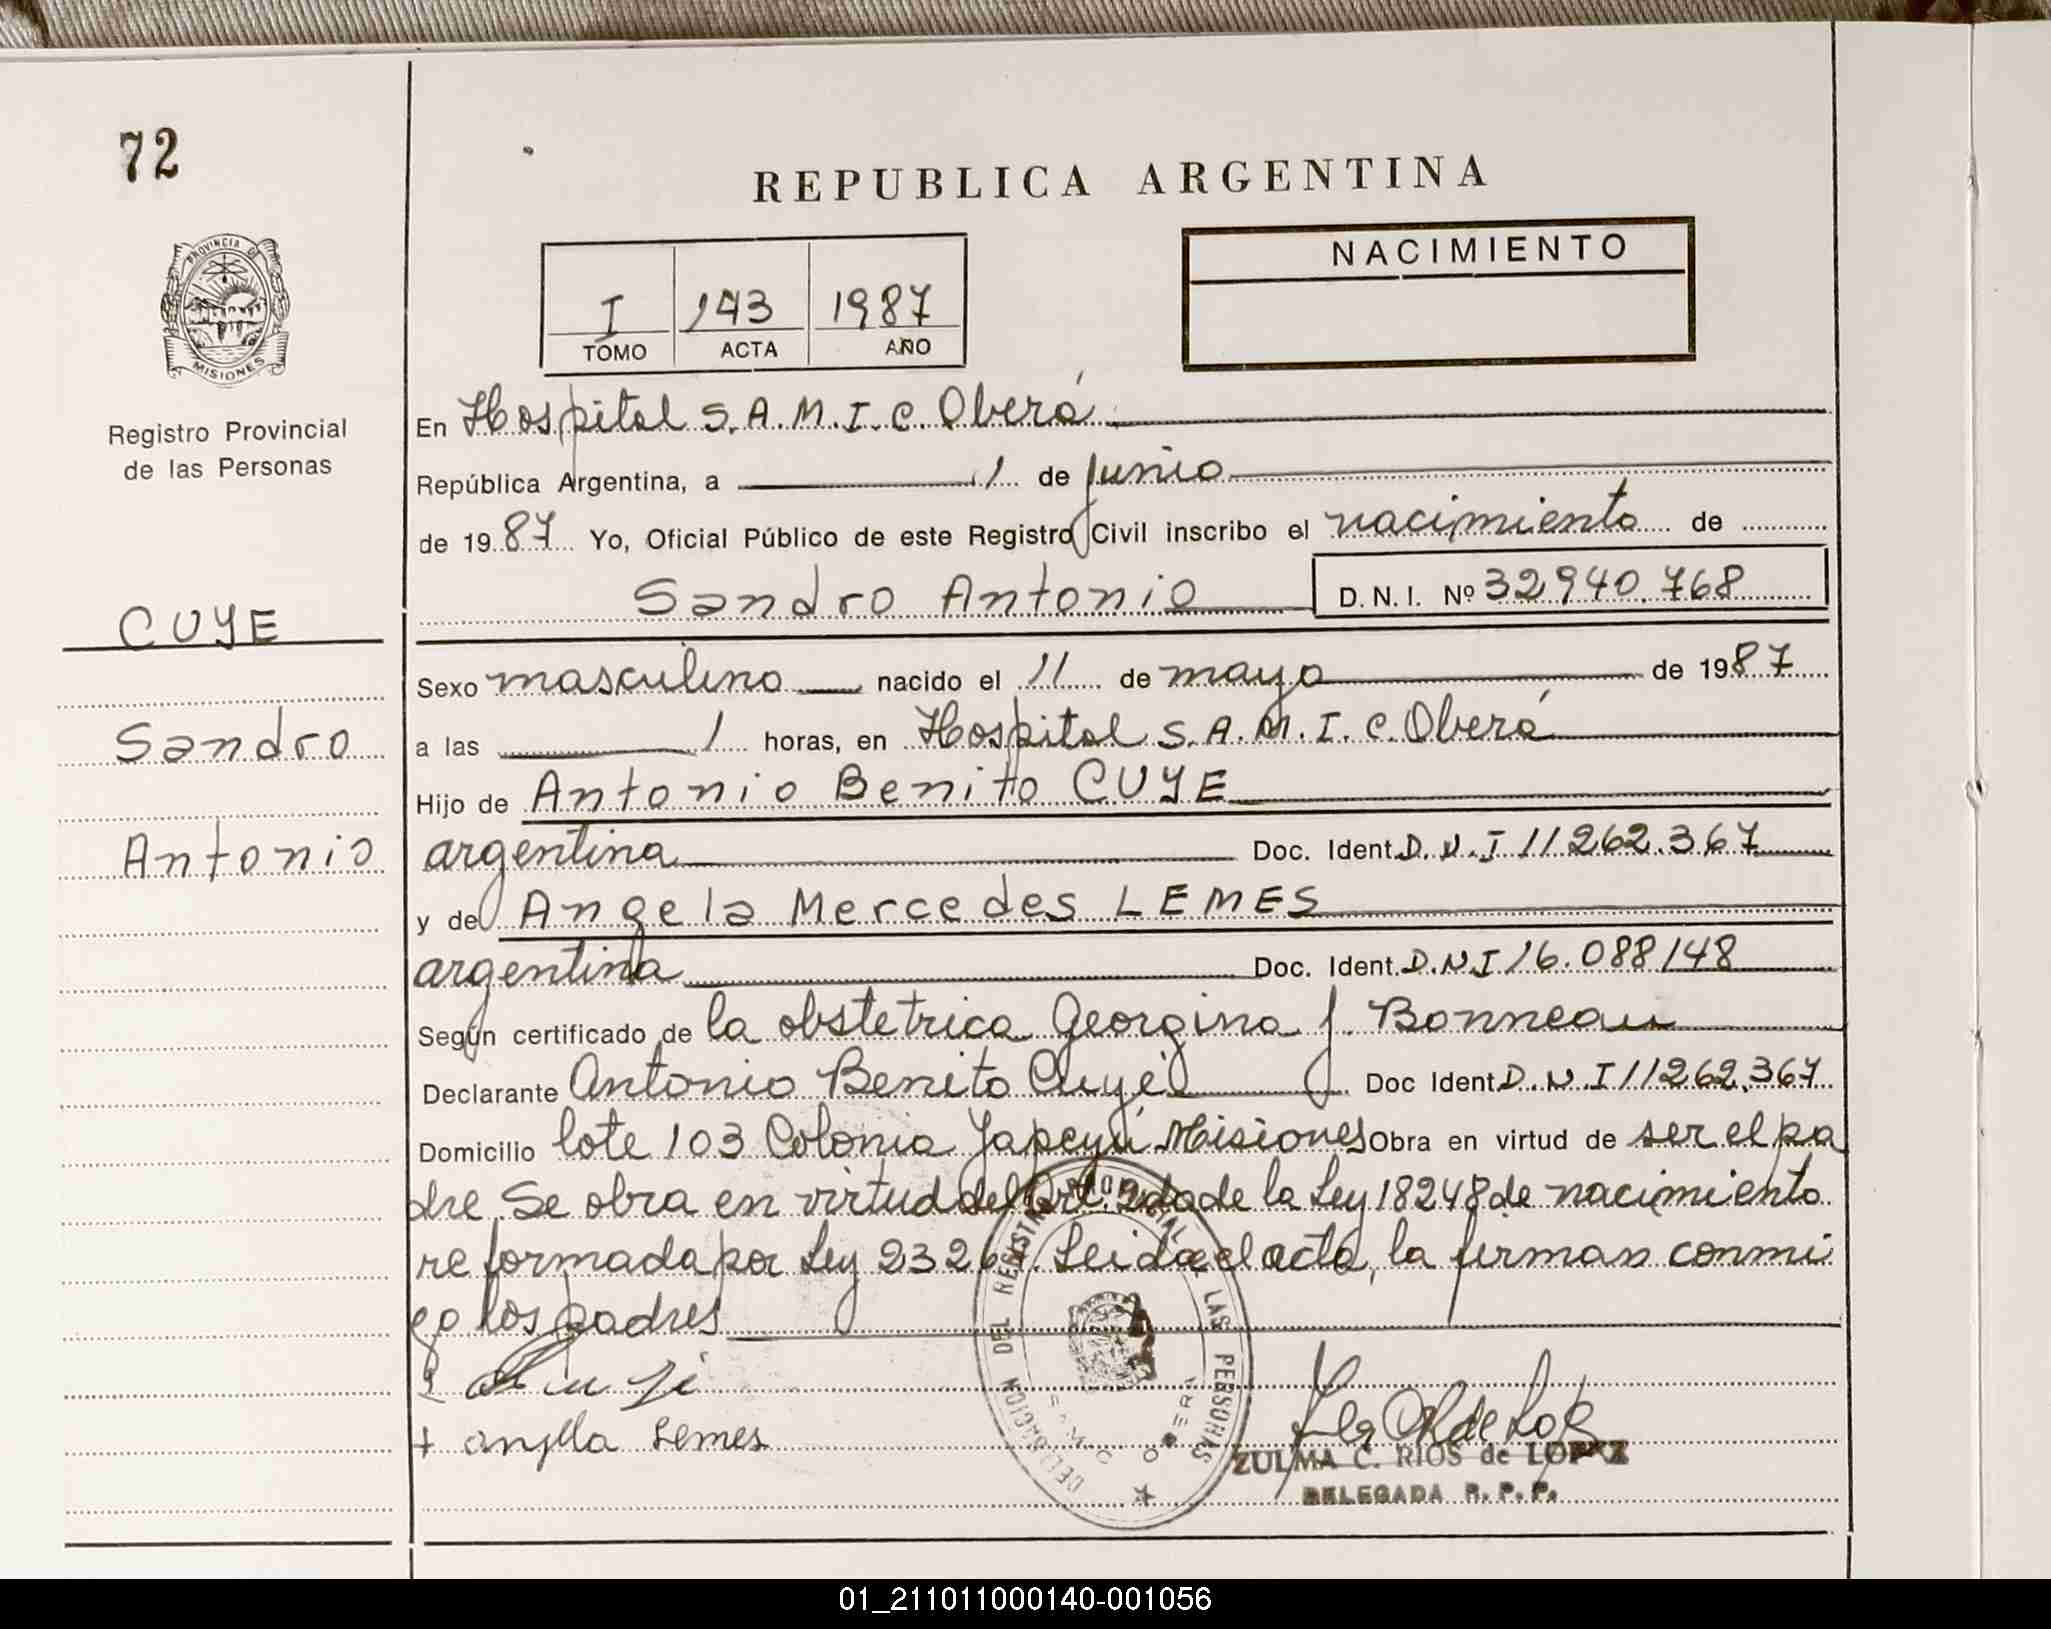 72
REPUBLICA ARGENTINA
PROVINCIA DE
MISIONES
NACIMIENTO
I 143 1987
TOMO ACTA AÑO
Registro Provincial
de las Personas
En Hospital S.A.M.I.C. Oberá
República Argentina, a 1 de Junio
de 1987 Yo, Oficial Público de este Registro Civil inscribo el nacimiento de
Sandro Antonio D.N.I. Nº 32940.768
CUYE
Sandro
Antonio
Sexo masculino nacido el 11 de mayo de 1987
a las 1 horas, en Hospital S.A.M.I.C. Oberá
Hijo de Antonio Benito CUYE
argentina Doc. Ident. D.N.I 11262.367
y de Angela Mercedes LEMES
argentina Doc. Ident. D.N.I 16.088148
Según certificado de la obstetrica Georgina J. Bonneau
Declarante Antonio Benito Cuyé Doc Ident. D.N.I 11262.367
Domicilio lote 103 Colonia Yapeyú Misiones Obra en virtud de ser el pa
dre. Se obra en virtud del Art. de la Ley 18248 de nacimiento
reformada por Ley Leida el acta, la firman conmi
go los padres
+ anjela Lemes
DELEGACION DEL REGISTRO PROVINCIAL DE LAS PERSONAS
OBERA
ZULMA C. RIOS de LOPEZ
DELEGADA R.P.P.
01_211011000140-001056